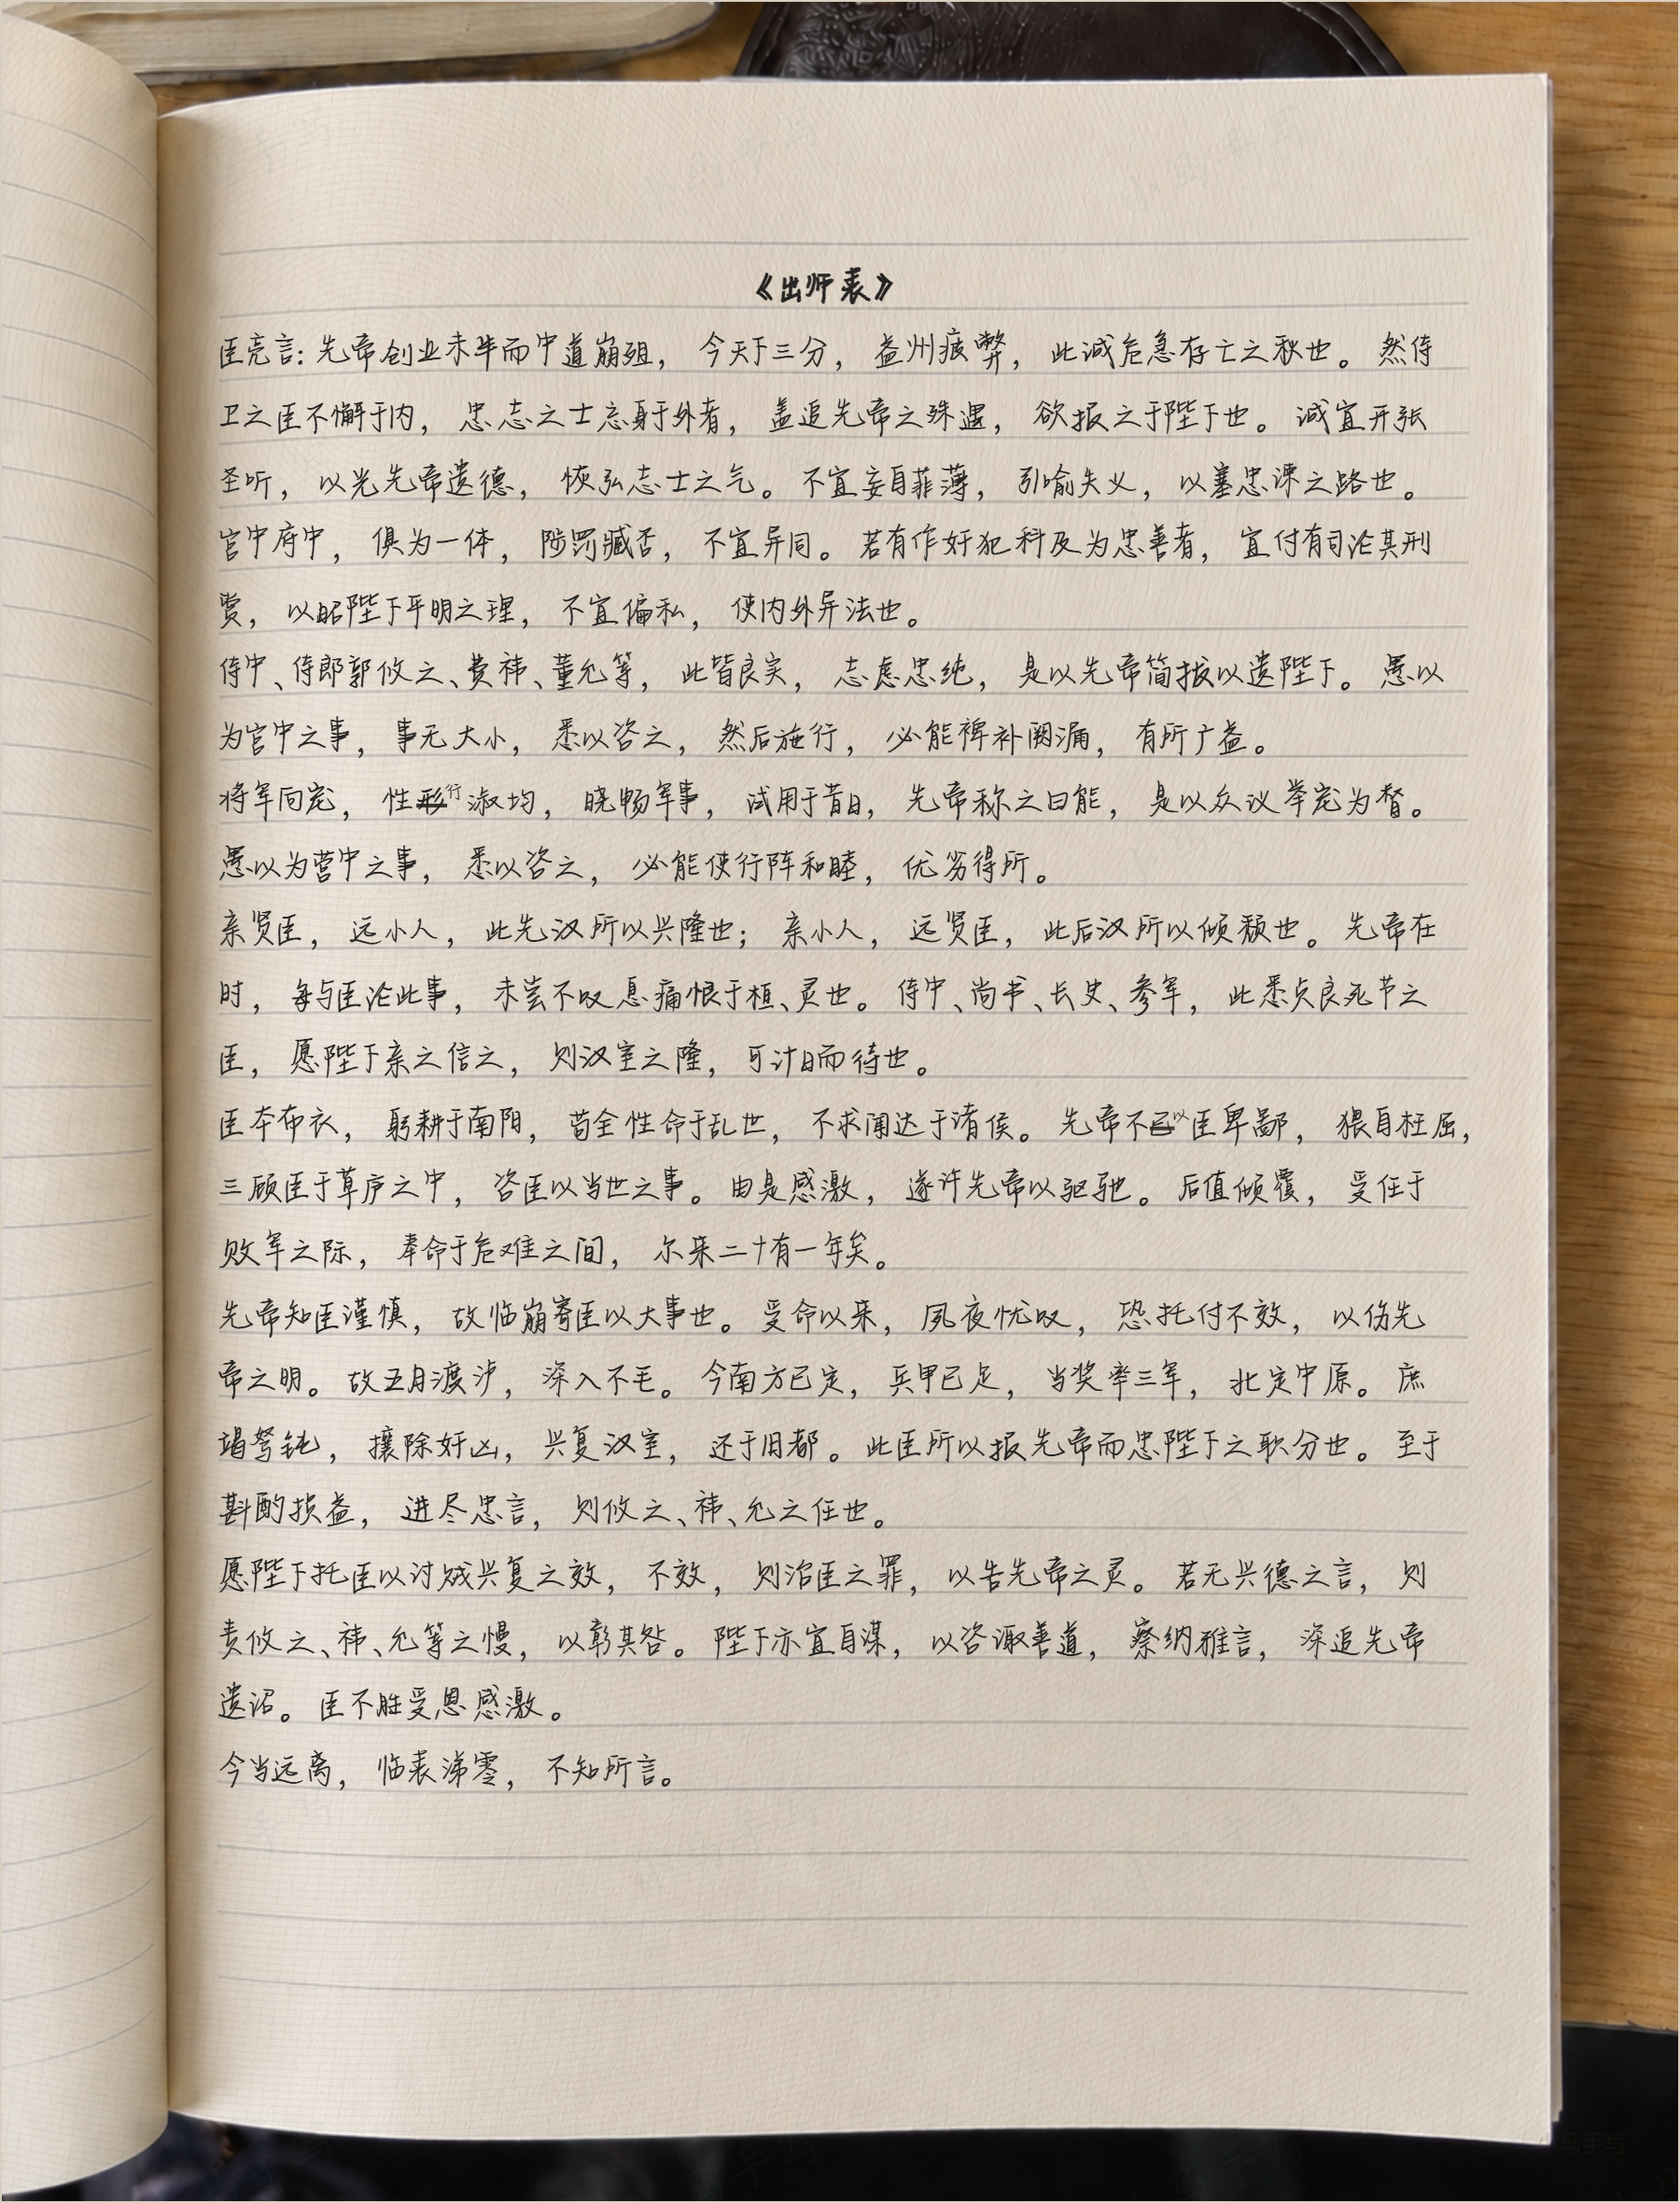 《出师表》
臣亮言：先帝创业未半而中道崩殂，今天下三分，益州疲弊，此诚危急存亡之秋也。然侍
卫之臣不懈于内，忠志之士忘身于外者，盖追先帝之殊遇，欲报之于陛下也。诚宜开张
圣听，以光先帝遗德，恢弘志士之气。不宜妄自菲薄，引喻失义，以塞忠谏之路也。
宫中府中，俱为一体，陟罚臧否，不宜异同。若有作奸犯科及为忠善者，宜付有司论其刑
赏，以昭陛下平明之理，不宜偏私，使内外异法也。
侍中、侍郎郭攸之、费祎、董允等，此皆良实，志虑忠纯，是以先帝简拔以遗陛下。愚以
为宫中之事，事无大小，悉以咨之，然后施行，必能裨补阙漏，有所广益。
将军向宠，性行淑均，晓畅军事，试用于昔日，先帝称之曰能，是以众议举宠为督。
愚以为营中之事，悉以咨之，必能使行阵和睦，优劣得所。
亲贤臣，远小人，此先汉所以兴隆也；亲小人，远贤臣，此后汉所以倾颓也。先帝在
时，每与臣论此事，未尝不叹息痛恨于桓、灵也。侍中、尚书、长史、参军，此悉贞良死节之
臣，愿陛下亲之信之，则汉室之隆，可计日而待也。
臣本布衣，躬耕于南阳，苟全性命于乱世，不求闻达于诸侯。先帝不以臣卑鄙，猥自枉屈，
三顾臣于草庐之中，咨臣以当世之事。由是感激，遂许先帝以驱驰。后值倾覆，受任于
败军之际，奉命于危难之间，尔来二十有一年矣。
先帝知臣谨慎，故临崩寄臣以大事也。受命以来，夙夜忧叹，恐托付不效，以伤先
帝之明。故五月渡泸，深入不毛。今南方已定，兵甲已足，当奖率三军，北定中原。庶
竭驽钝，攘除奸凶，兴复汉室，还于旧都。此臣所以报先帝而忠陛下之职分也。至于
斟酌损益，进尽忠言，则攸之、祎、允之任也。
愿陛下托臣以讨贼兴复之效，不效，则治臣之罪，以告先帝之灵。若无兴德之言，则
责攸之、祎、允等之慢，以彰其咎。陛下亦宜自谋，以咨诹善道，察纳雅言，深追先帝
遗诏。臣不胜受恩感激。
今当远离，临表涕零，不知所言。